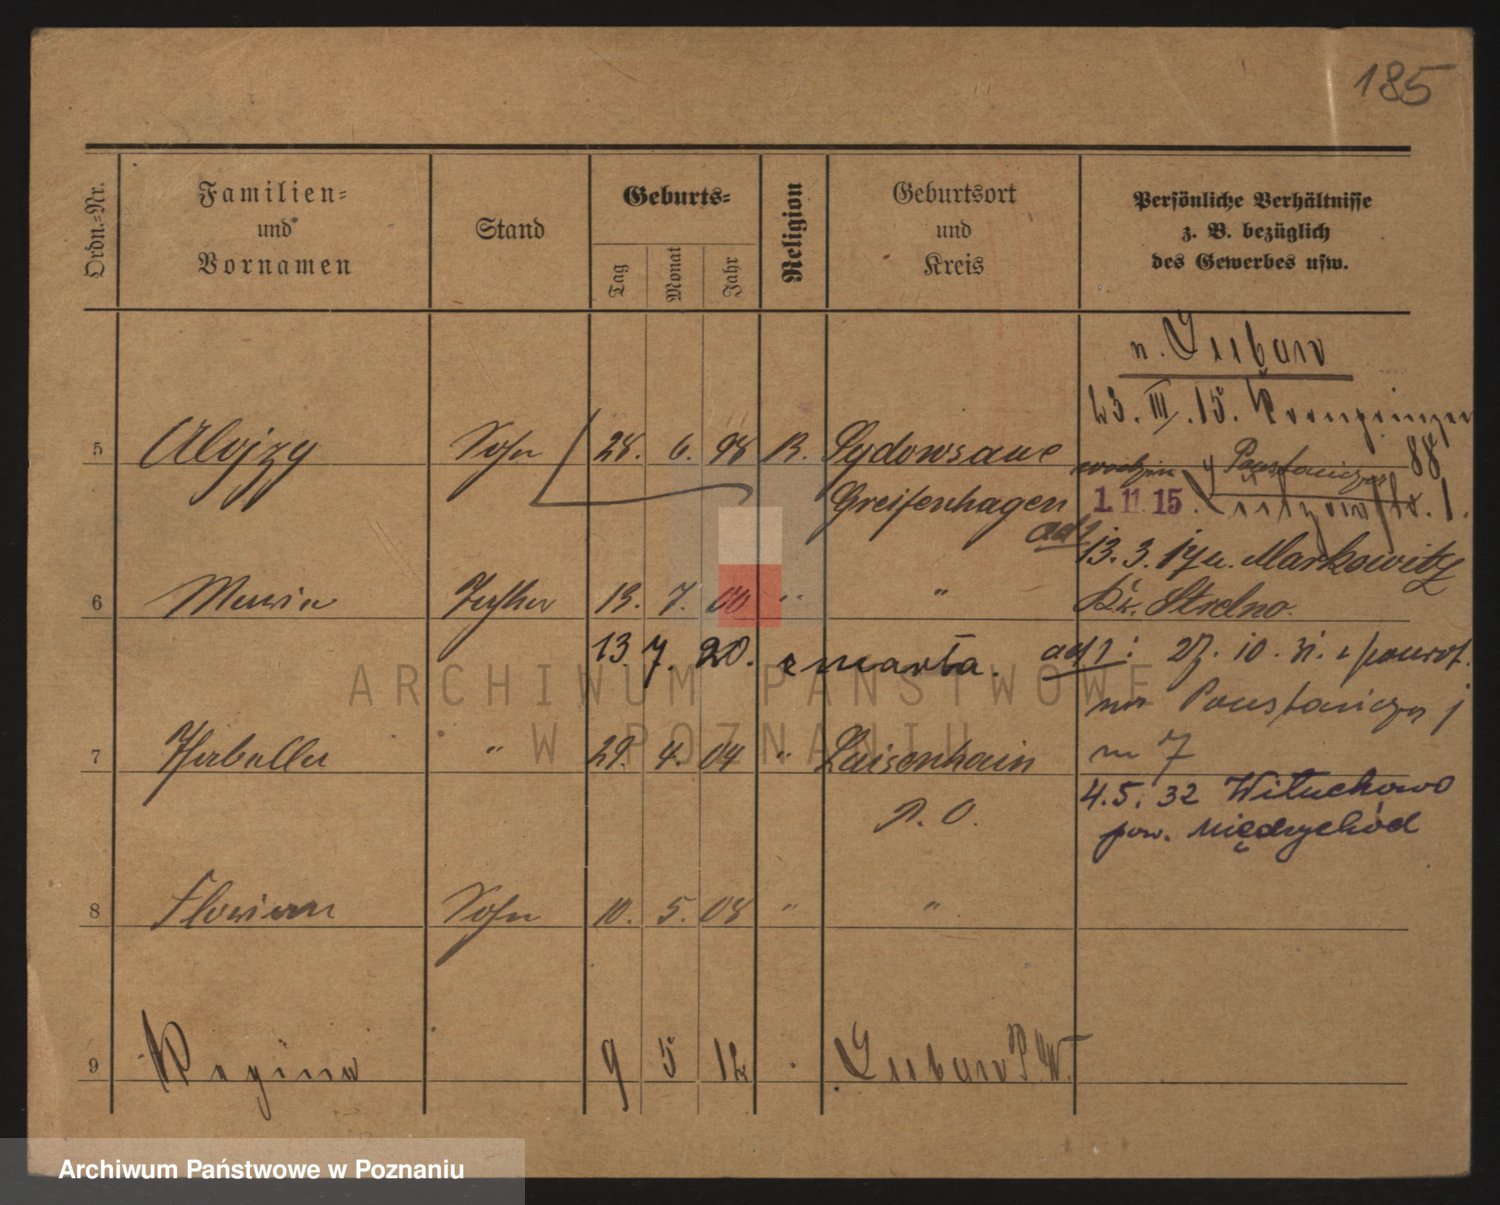 185
Ordn.=Nr.
Familien=
und
Vornamen
Stand
Geburts=
Tag
Monat
Jahr
Religion
Geburtsort
und
Kreis
Persönliche Verhältnisse
z. B. bezüglich
des Gewerbes usw.
n. Lubau
23. III. 15. Kronprinzen
88
5 Alojzy Sohn 28. 6. 98 R. Sydowsaue
Greifenhagen
1. 11. 15.
ad 1
13. 3. 17 n. Markowitz
Kr. Strelno.
6 Maria Tochter 13. 7. 00 " "
13. 7. 20. zmarła.
ad 1: 27. 10. 21. z powrot.
na Powstańcza j
m 7
7 Isabella " 29. 4. 04 " Luisenhain
P. O.
4. 5. 32 Wituchowo
pow. Międzychód
8 Florian Sohn 10. 5. 08 " "
9 Regina 9 5 12 . Lubau P. W.
ARCHIWUM PAŃSTWOWE
W POZNANIU
Archiwum Państwowe w Poznaniu